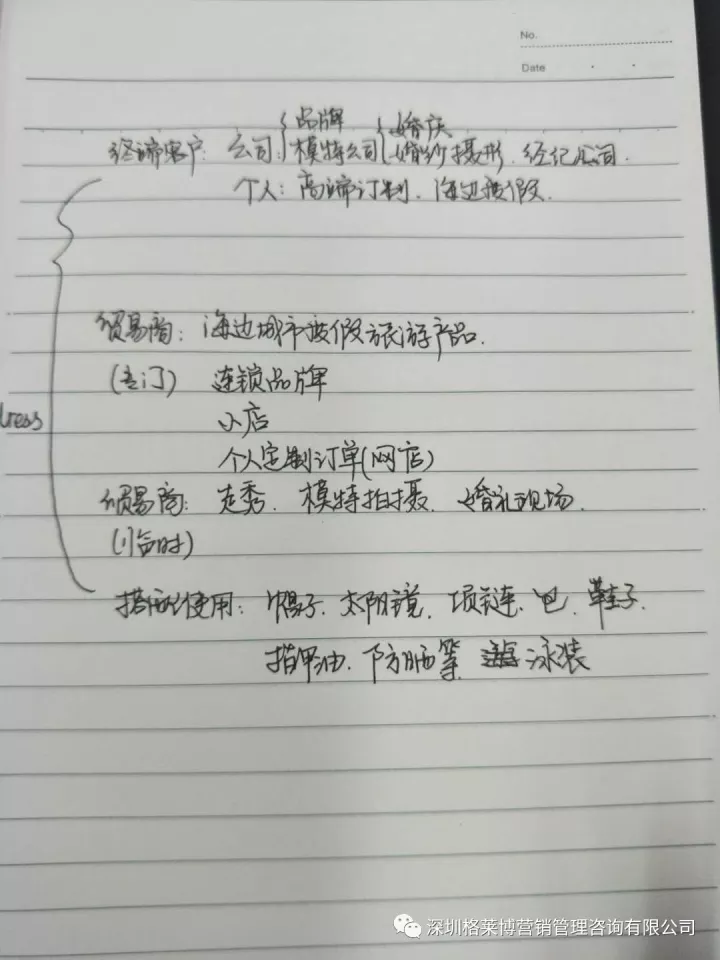 No.
Date
品牌 婚庆
终端客户: 公司: 模特公司 婚纱摄形、经纪公司.
个人: 高端订制、海边度假.
贸易商: 海边城市度假旅游产品.
(专订) 连锁品牌
小店
ress
个人定制订单(网店)
贸易商: 走秀、模特拍摄、婚礼现场.
(临时)
搭配使用: 帽子、太阳镜、项链、包、鞋子、
指甲油、防晒等 泳装
深圳格莱博营销管理咨询有限公司